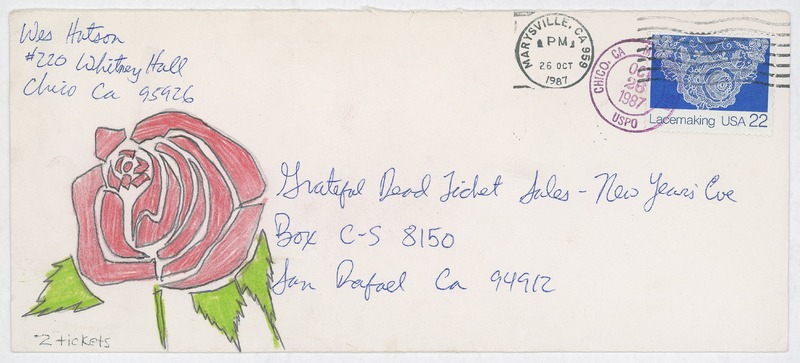 Wes Hutson
#220 Whitney Hall
Chico Ca 95926
MARYSVILLE, CA 959
PM
26 OCT
1987
CHICO, CA
OCT
26
1987
USPO
Lacemaking USA 22
Grateful Dead Ticket Sales - New Years Eve
Box C-S 8150
San Rafael Ca 94912
2 tickets